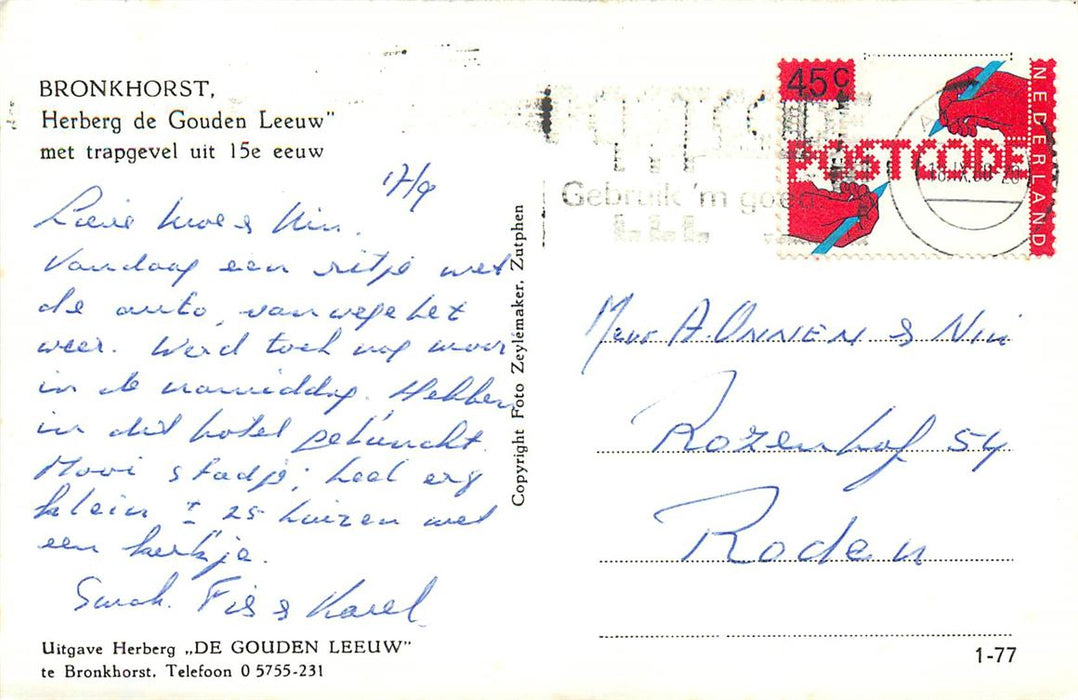 BRONKHORST,
Herberg de Gouden Leeuw"
met trapgevel uit 15e eeuw
17/9
Lieve Moe & Nin.
Vandaag een ritje met
de auto, vanwege het
weer. Werd toch nog mooi
in de namiddag. Hebben
in dit hotel geluncht.
Mooi stadje; heel erg
klein ± 25 huizen met
een kerkje.
Fie & Karel
Uitgave Herberg „DE GOUDEN LEEUW"
te Bronkhorst, Telefoon 0 5755-231
Copyright Foto Zeylemaker, Zutphen
POSTCODE
Gebruik 'm goed
45c
POSTCODE
NEDERLAND
Mevr A. ONNEN & Nin
Rozenhof 54
Roden
1-77